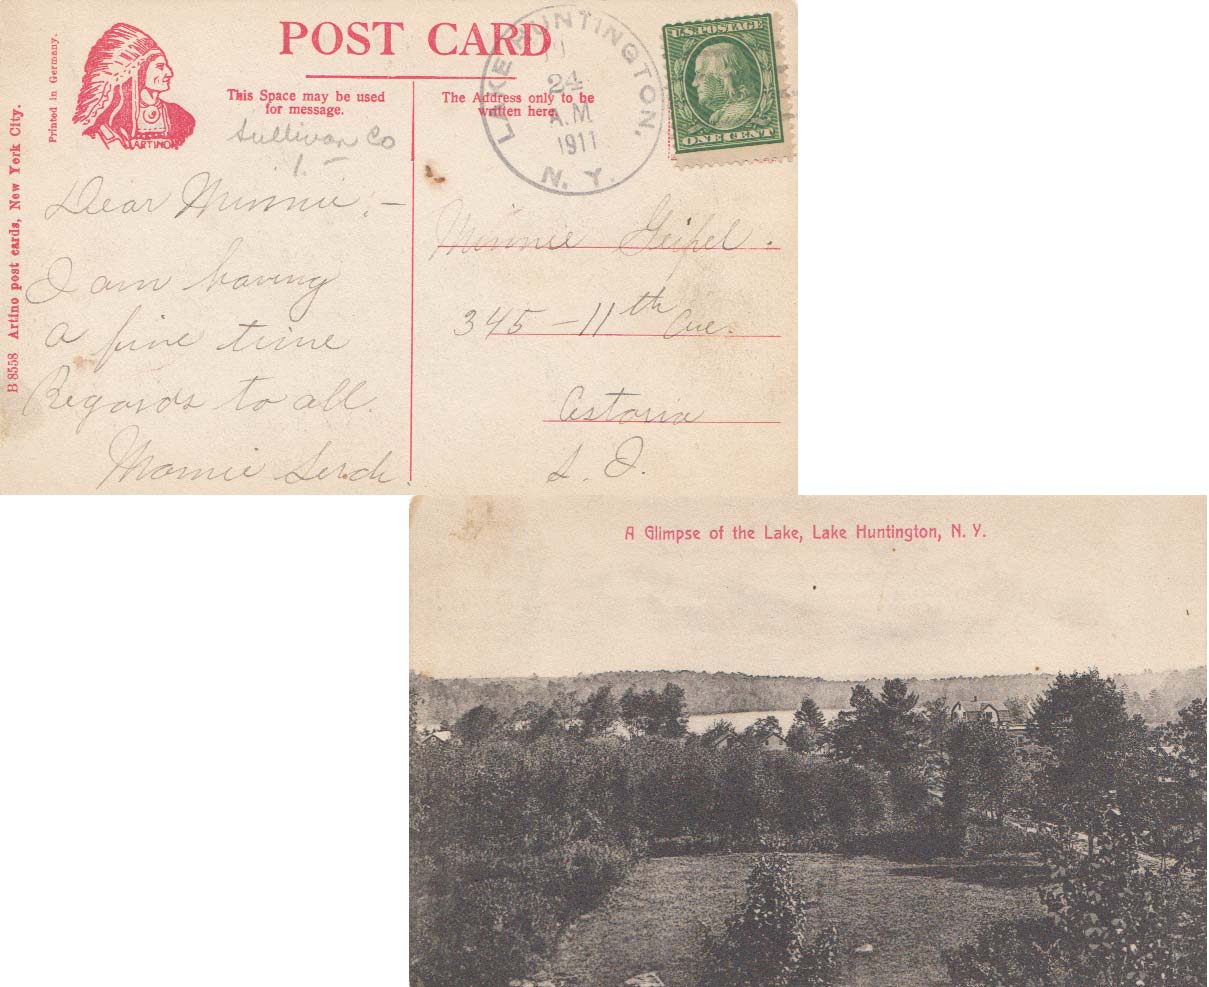 POST CARD
This Space may be used
for message.
The Address only to be
written here.
Printed in Germany.
B 8558 Artino post cards, New York City.
ARTINO
LAKE HUNTINGTON,
24
A.M
1911
N. Y.
U.S. POSTAGE
ONE CENT
Sullivan Co
1.—
Dear Minnie:—
I am having
a fine time
Regards to all.
Mamie
Minnie Geipel.
345 – 11th Ave.
Astoria
L. I.
A Glimpse of the Lake, Lake Huntington, N. Y.